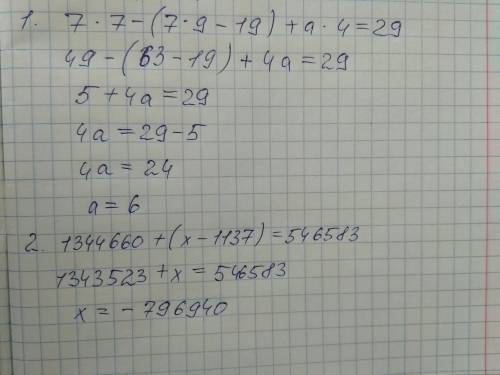 1. 7·7-(7·9-19)+a·4=29
49-(63-19)+4a=29
5+4a=29
4a=29-5
4a=24
a=6
2. 1344660+(x-1137)=546583
1343523+x=546583
x=-796940